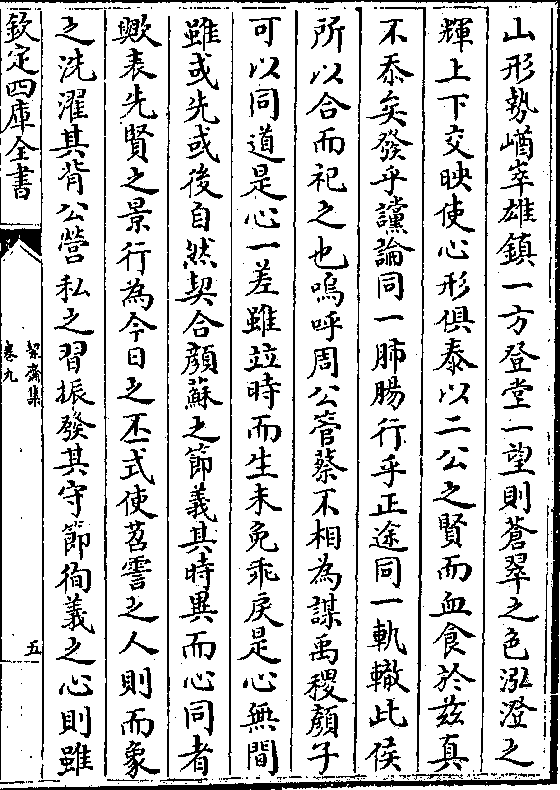 山形勢崷崒雄鎮一方登堂一望則蒼翠之色泓澄之
輝上下交映使心形俱泰以二公之賢而血食於兹真
不忝矣發乎讜論同一肺腸行乎正途同一軌轍此侯
所以合而祀之也嗚呼周公管蔡不相為謀禹稷顏子
可以同道是心一差雖竝時而生未免乖戾是心無間
雖或先或後自然契合顏蘇之節義其時異而心同者
歟表先賢之景行為今日之丕式使苕霅之人則而象
之洗濯其背公營私之習振發其守節徇義之心則雖
欽定四庫全書
絜齋集
卷九
五